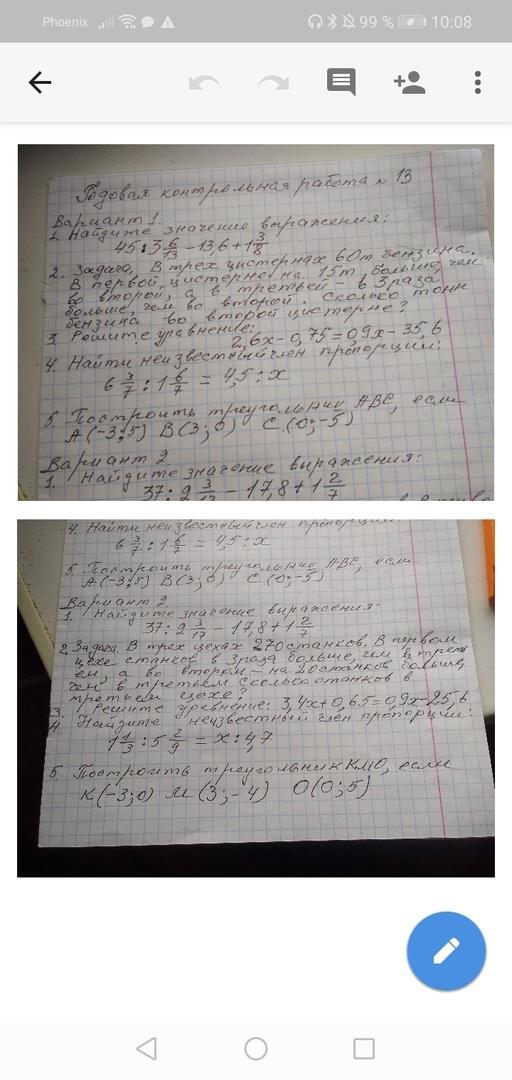 Phoenix 99 % 10:08
Годовая контрольная работа № 13
Вариант 1.
1. Найдите значение выражения:
45 : 3 6/13 - 13,6 + 1 3/8
2. Задача. В трех цистернах 60т бензина.
В первой цистерне на 15т больше, чем
во второй, а в третьей - в 3 раза
больше, чем во второй. Сколько тонн
бензина во второй цистерне?
3. Решите уравнение:
2,6x - 0,75 = 0,9x - 35,6
4. Найти неизвестный член пропорции:
6 3/7 : 1 6/7 = 4,5 : x
5. Построить треугольник ABC, если
A(-3;5) B(3;0) C(0;-5)
Вариант 2
1. Найдите значение выражения:
37 : 2 3/17 - 17,8 + 1 2/7
4. Найти неизвестный член пропорции:
6 3/7 : 1 6/7 = 4,5 : x
5. Построить треугольник ABC, если
A(-3;5) B(3;0) C(0;-5)
Вариант 2
1. Найдите значение выражения:
37 : 2 3/17 - 17,8 + 1 2/7
2. Задача. В трех цехах 270 станков. В первом
цехе станков в 3 раза больше, чем в треть
ем, а во втором - на 20 станков больше,
чем в третьем. Сколько станков в
третьем цехе?
3. Решите уравнение: 3,4x + 0,65 = 0,9x - 25,6
4. Найдите неизвестный член пропорции:
1 1/3 : 5 2/9 = x : 4,7
5 Построить треугольник КМО, если
К(-3;0) М(3;-4) О(0;5)